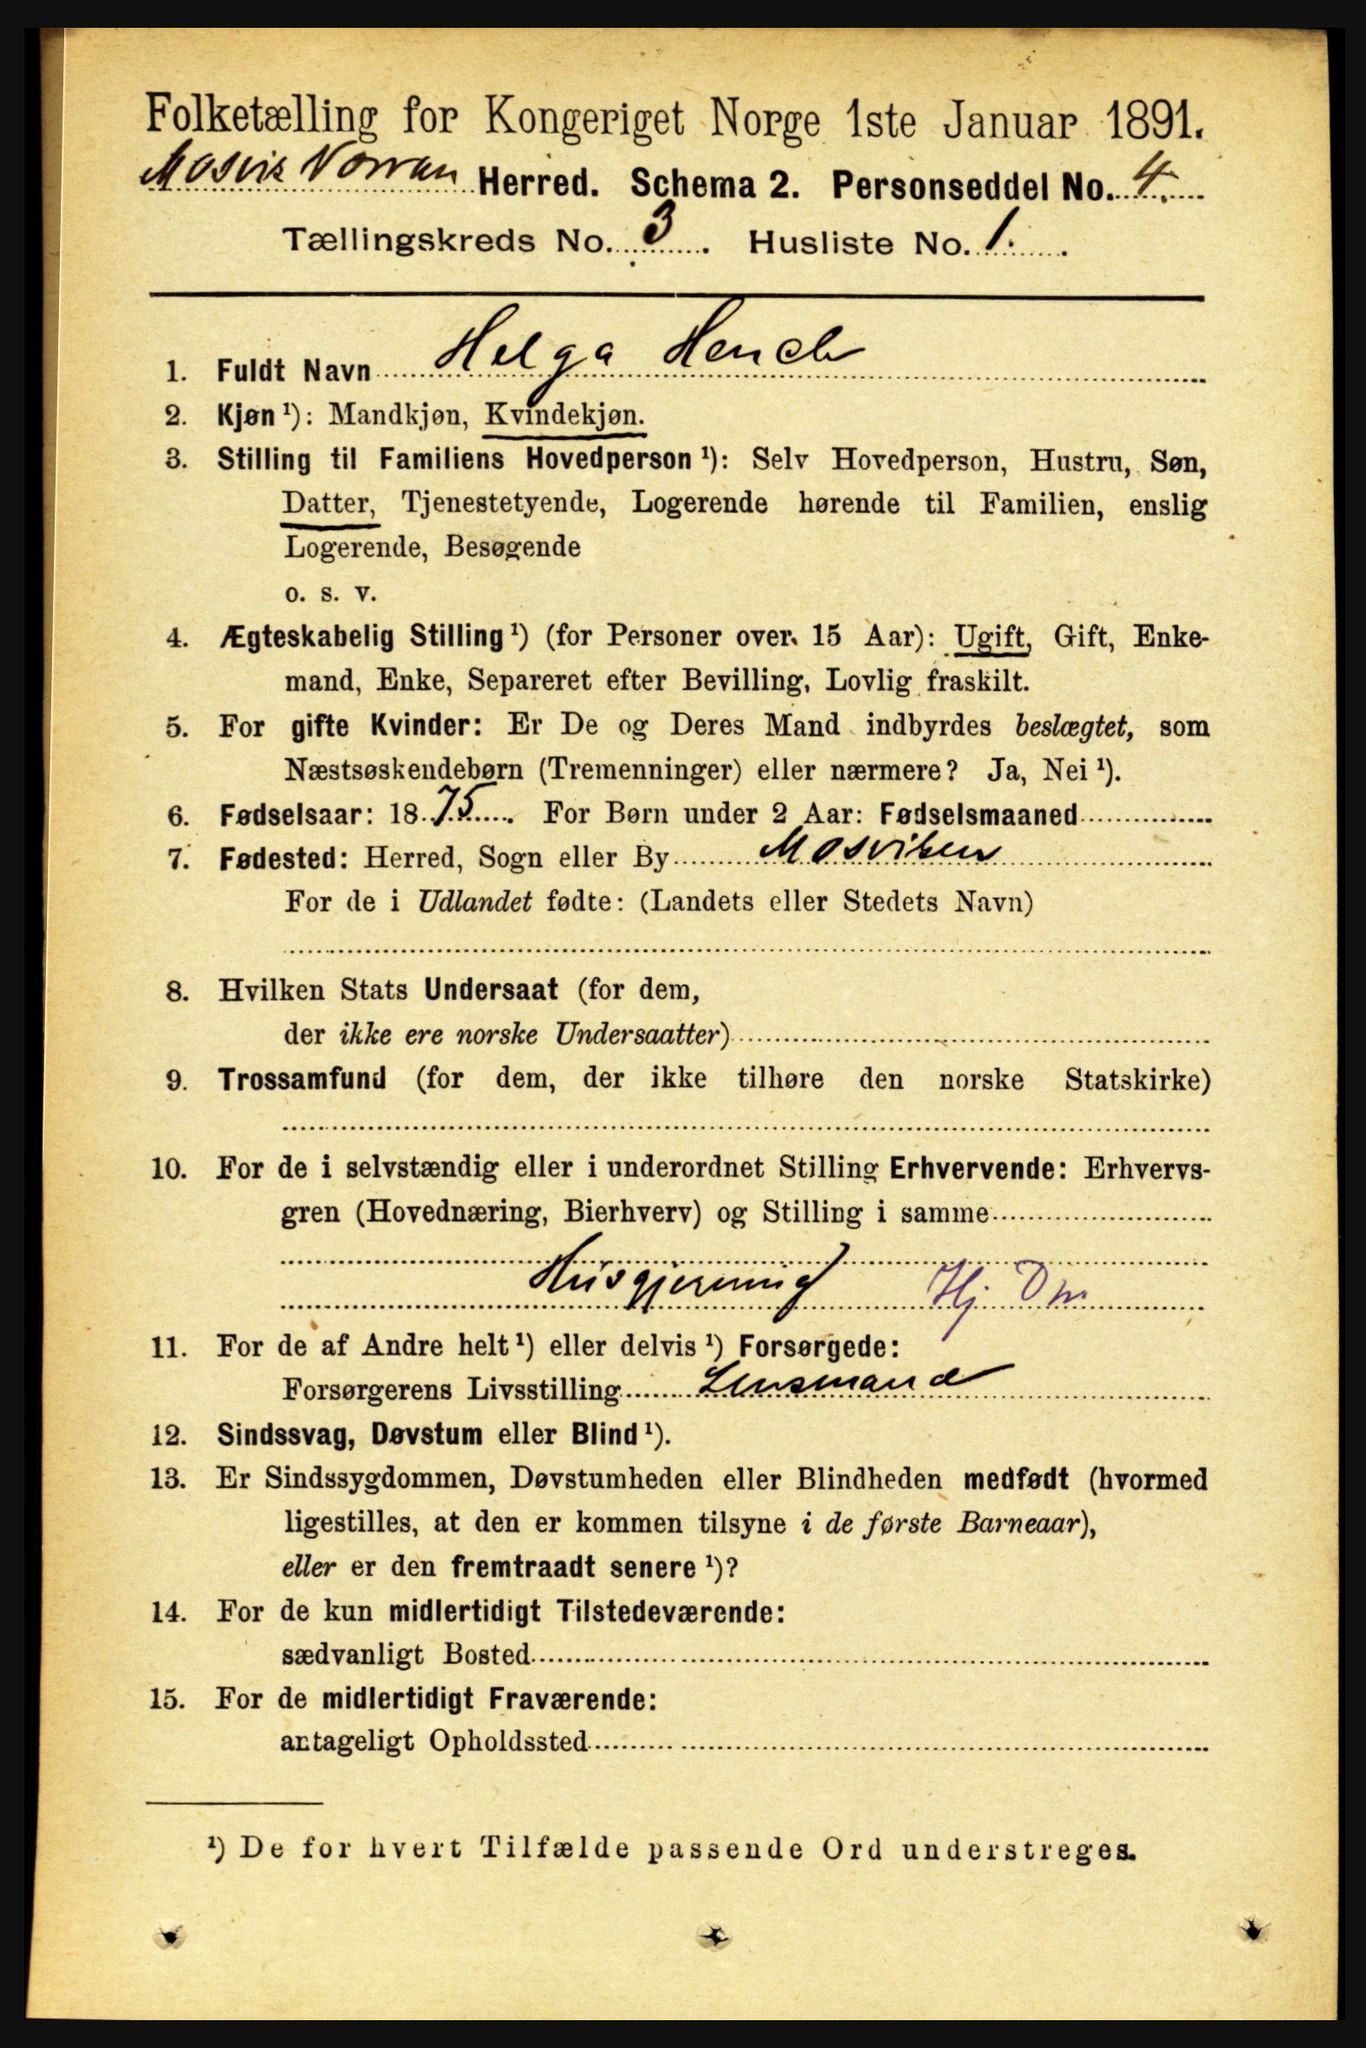 Folketælling for Kongeriget Norge 1ste Januar 1891.
Mosvik Verran Herred. Schema 2. Personseddel No. 4.
Tællingskreds No. 3. Husliste No. 1.
1. Fuldt Navn Helga Hench
2. Kjøn ¹): Mandkjøn, Kvindekjøn.
3. Stilling til Familiens Hovedperson ¹): Selv Hovedperson, Hustru, Søn,
Datter, Tjenestetyende, Logerende hørende til Familien, enslig
Logerende, Besøgende
o. s. v.
4. Ægteskabelig Stilling ¹) (for Personer over 15 Aar): Ugift, Gift, Enke-
mand, Enke, Separeret efter Bevilling, Lovlig fraskilt.
5. For gifte Kvinder: Er De og Deres Mand indbyrdes beslægtet, som
Næstsøskendebørn (Tremenninger) eller nærmere? Ja, Nei ¹).
6. Fødselsaar: 1875. For Børn under 2 Aar: Fødselsmaaned
7. Fødested: Herred, Sogn eller By Mosviken
For de i Udlandet fødte: (Landets eller Stedets Navn)
8. Hvilken Stats Undersaat (for dem,
der ikke ere norske Undersaatter)
9. Trossamfund (for dem, der ikke tilhøre den norske Statskirke)
10. For de i selvstændig eller i underordnet Stilling Erhvervende: Erhvervs-
gren (Hovednæring, Bierhverv) og Stilling i samme
Husgjerning Hj
11. For de af Andre helt ¹) eller delvis ¹) Forsørgede:
Forsørgerens Livsstilling Lensmand
12. Sindssvag, Døvstum eller Blind ¹).
13. Er Sindssygdommen, Døvstumheden eller Blindheden medfødt (hvormed
ligestilles, at den er kommen tilsyne i de første Barneaar),
eller er den fremtraadt senere ¹)?
14. For de kun midlertidigt Tilstedeværende:
sædvanligt Bosted
15. For de midlertidigt Fraværende:
antageligt Opholdssted
¹) De for hvert Tilfælde passende Ord understreges.